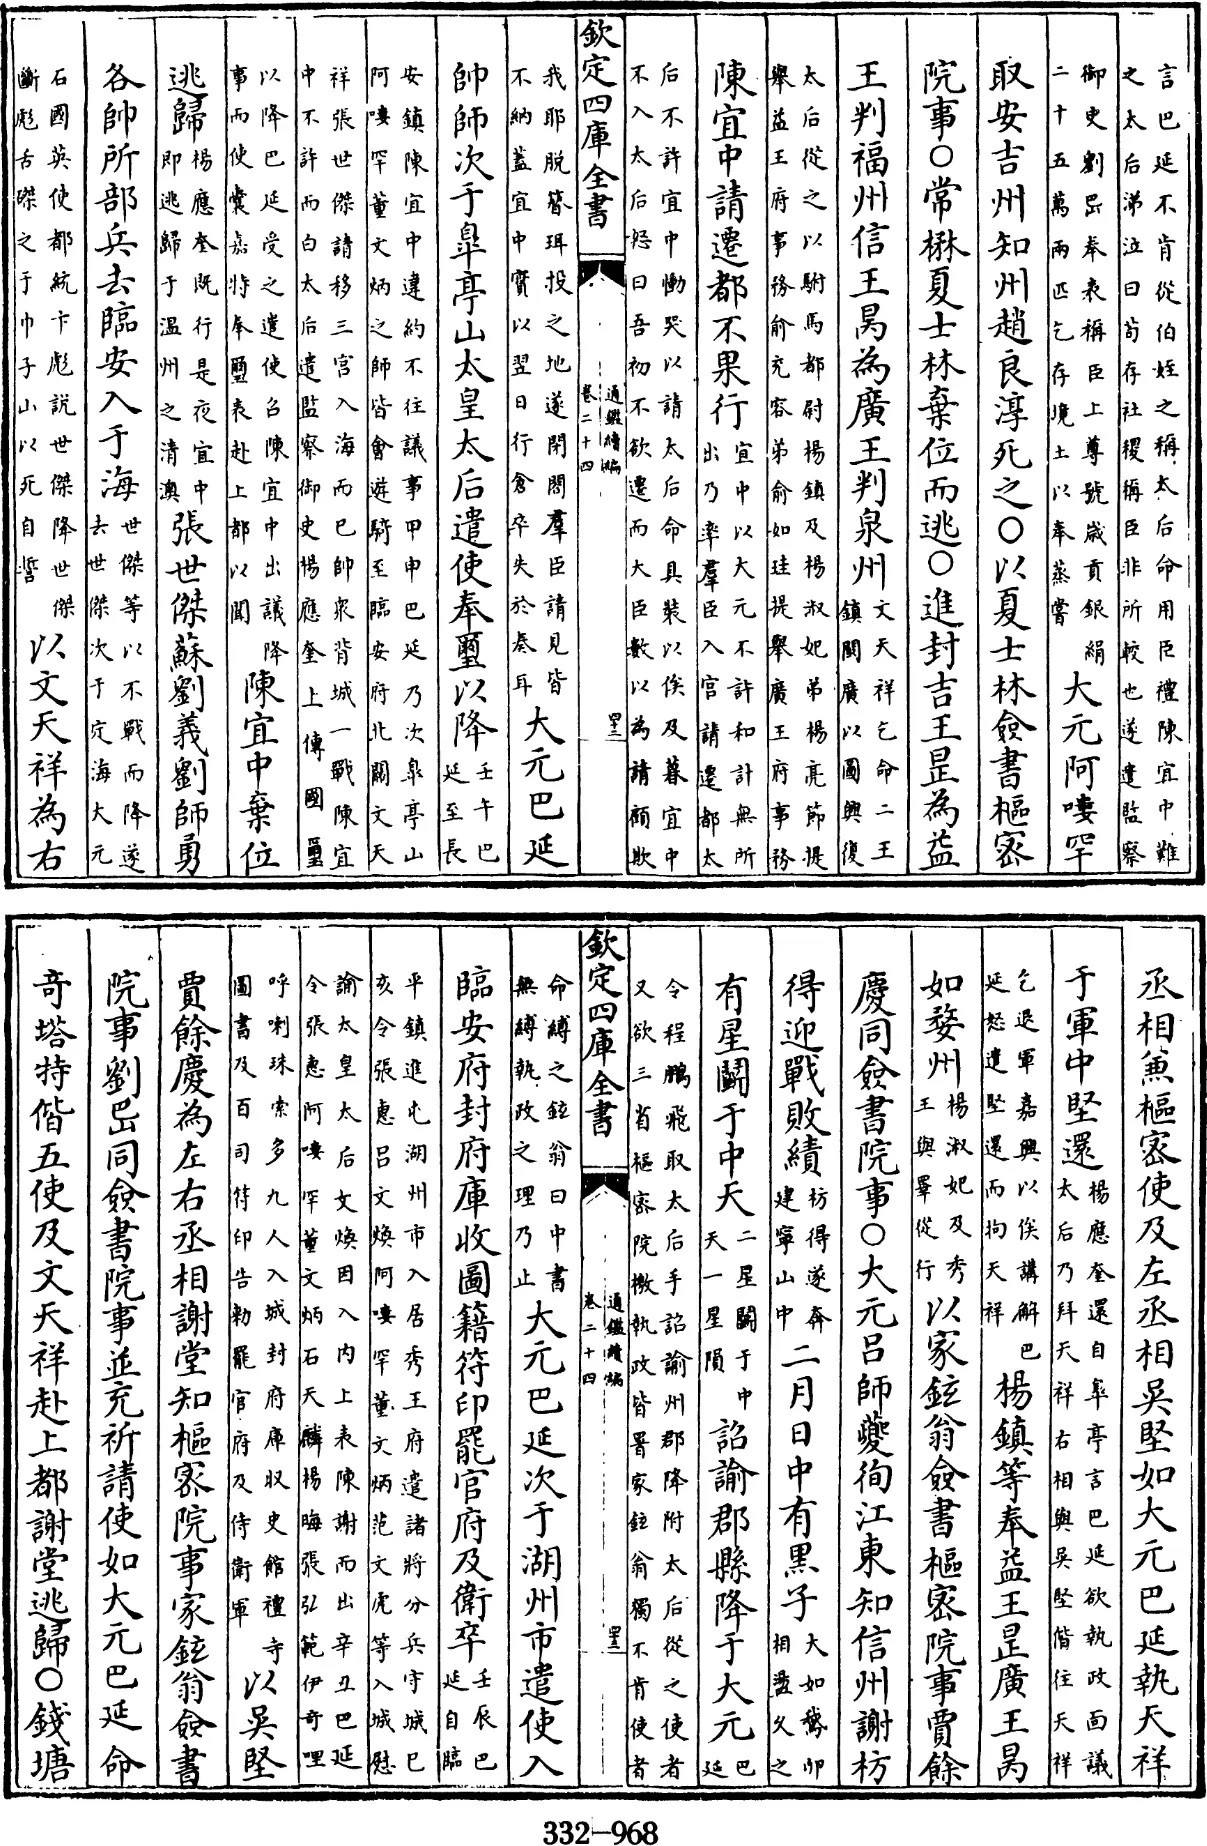 言巴延不肯從伯姪之稱太后命用臣禮陳宜中難
之太后涕泣曰苟存社稷稱臣非所較也遂遣監察
御史劉岊奉表稱臣上尊號歲貢銀絹
二十五萬兩匹乞存境土以奉蒸嘗
大元阿嘍罕
取安吉州知州趙良淳死之○以夏士林僉書樞密
院事○常楙夏士林棄位而逃○進封吉王昰為益
王判福州信王昺為廣王判泉州
文天祥乞命二王
鎮閩廣以圖興復
太后從之以駙馬都尉楊鎮及楊淑妃弟楊亮節提
舉益王府事務俞充容弟俞如珪提舉廣王府事務
陳宜中請遷都不果行
宜中以大元不許和計無所
出乃率羣臣入宫請遷都太
后不許宜中慟哭以請太后命具裝以俟及暮宜中
不入太后怒曰吾初不欲遷而大臣數以為請顧欺
欽定四庫全書
通鑑續編
卷二十四
我耶脱簪珥投之地遂閉閣羣臣請見皆
不納蓋宜中實以翌日行倉卒失於奏耳
大元巴延
帥師次于臯亭山太皇太后遣使奉璽以降
壬午巴
延至長
安鎮陳宜中違約不往議事甲申巴延乃次臯亭山
阿嘍罕董文炳之師皆會遊騎至臨安府北關文天
祥張世傑請移三宫入海而已帥衆背城一戰陳宜
中不許而白太后遣監察御史楊應奎上傳國璽
以降巴延受之遣使召陳宜中出議降
事而使囊嘉特奉璽表赴上都以聞
陳宜中棄位
逃歸
楊應奎既行是夜宜中
即逃歸于溫州之清澳
張世傑蘇劉義劉師勇
各帥所部兵去臨安入于海
世傑等以不戰而降遂
去世傑次于定海大元
石國英使都統卞彪説世傑降世傑
斷彪舌磔之于巾子山以死自誓
以文天祥為右
丞相兼樞密使及左丞相吳堅如大元巴延執天祥
于軍中堅還
楊應奎還自臯亭言巴延欲執政面議
太后乃拜天祥右相與吳堅偕往天祥
乞退軍嘉興以俟講解巴
延怒遣堅還而拘天祥
楊鎮等奉益王昰廣王昺
如婺州
楊淑妃及秀
王與睪從行
以家鉉翁僉書樞密院事賈餘
慶同僉書院事○大元呂師夔徇江東知信州謝枋
得迎戰敗績
枋得遂奔
建寧山中
二月日中有黑子
大如鵝卵
相盪久之
有星鬭于中天
二星鬭于中
天一星隕
詔諭郡縣降于大元
巴
延
令程鵬飛取太后手詔諭州郡降附太后從之使者
又欲三省樞密院檄執政皆署家鉉翁獨不肯使者
欽定四庫全書
通鑑續編
卷二十四
命縛之鉉翁曰中書
無縛執政之理乃止
大元巴延次于湖州市遣使入
臨安府封府庫收圖籍符印罷官府及衛卒
壬辰巴
延自臨
平鎮進屯湖州市入居秀王府遣諸將分兵守城巳
亥令張惠呂文煥阿嘍罕董文炳范文虎等入城慰
諭太皇太后文煥因入内上表陳謝而出辛丑巴延
令張惠阿嘍罕董文炳石天麟楊晦張弘範伊奇哩
呼喇珠索多九人入城封府庫収史館禮寺
圖書及百司符印告勅罷官府及侍衛軍
以吳堅
賈餘慶為左右丞相謝堂知樞密院事家鉉翁僉書
院事劉岊同僉書院事並充祈請使如大元巴延命
奇塔特偕五使及文天祥赴上都謝堂逃歸○錢塘
332-968